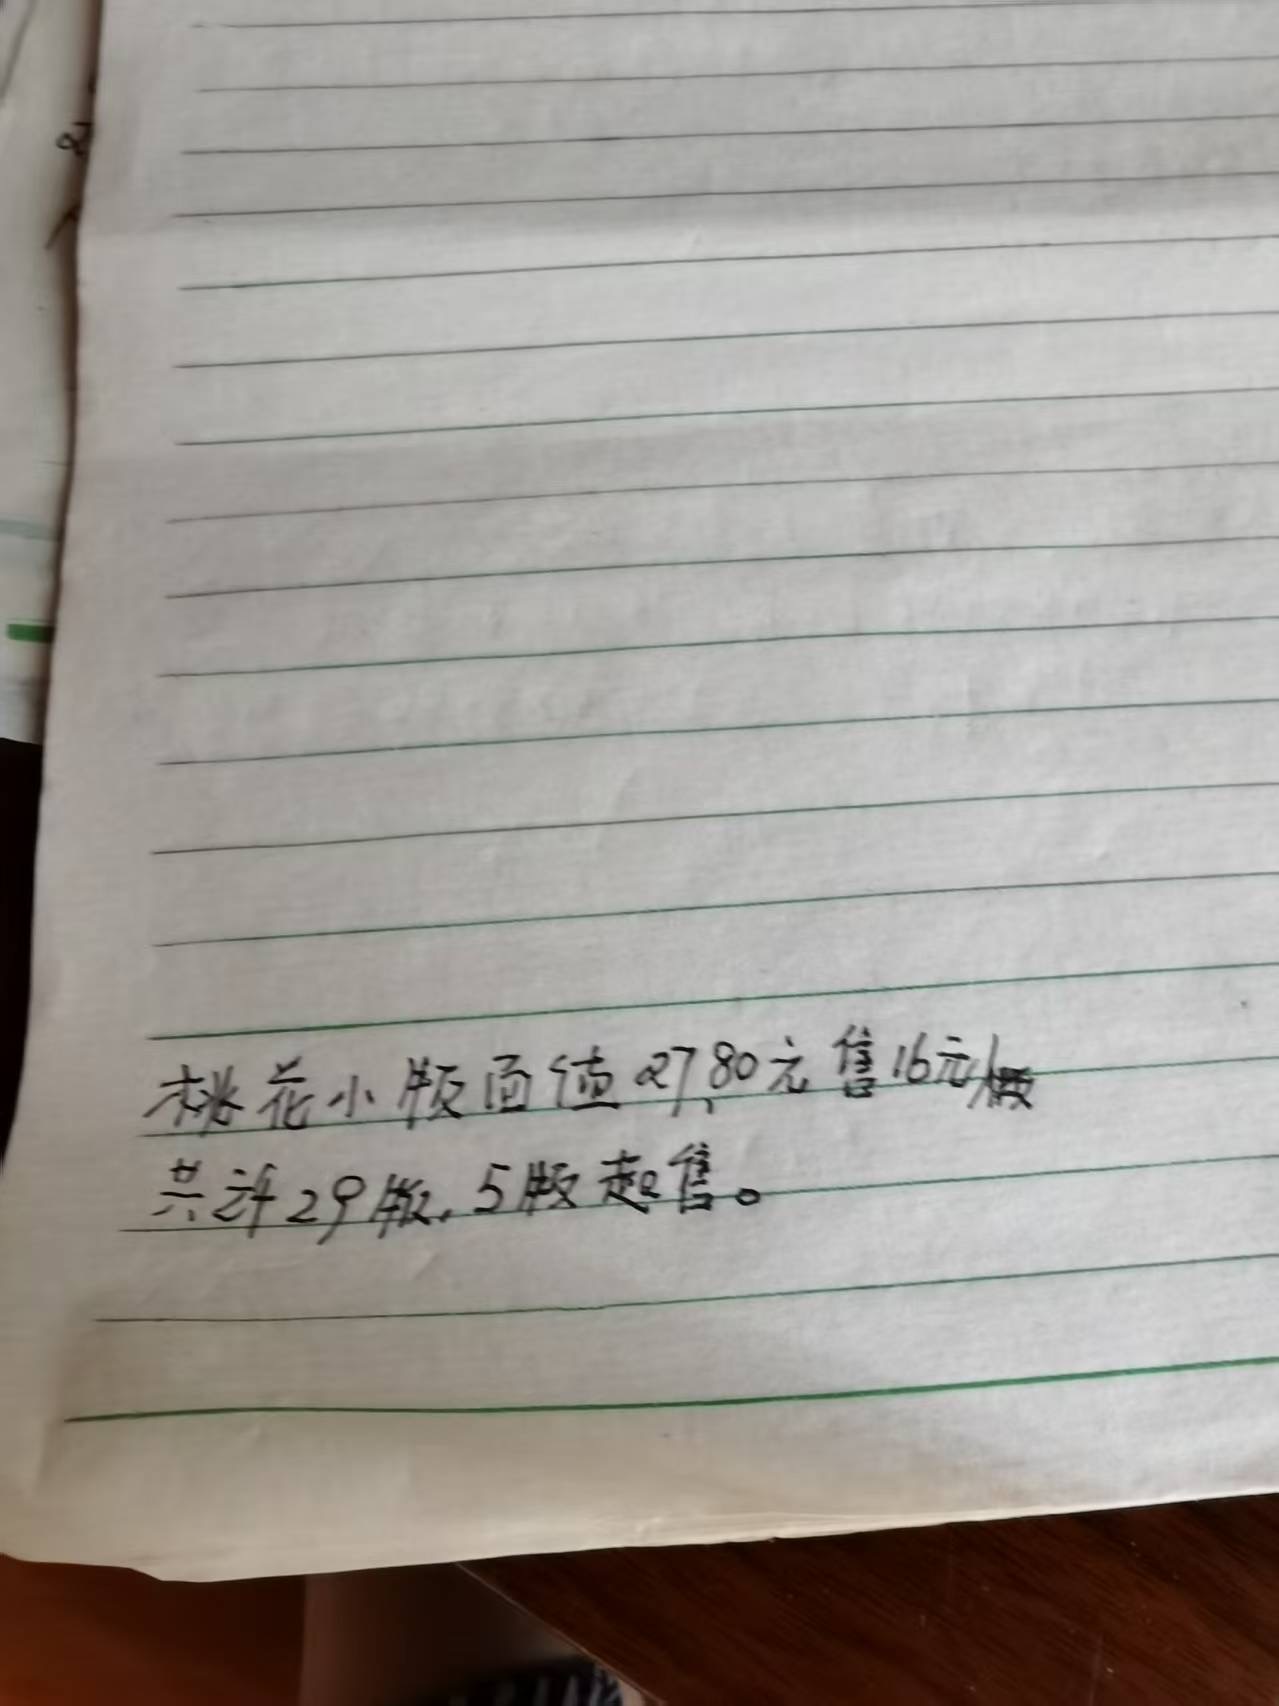 桃花小版面值27.80元售16元/版
共计29版.5版起售。